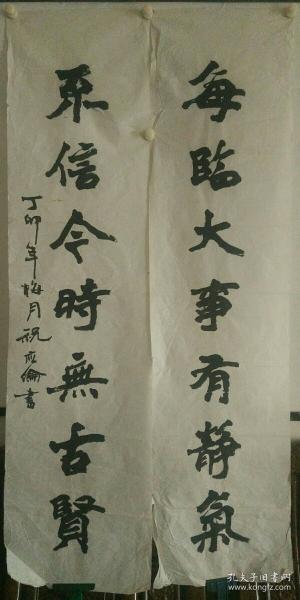 每臨大事有靜氣
不信今時無古賢
丁卯年梅月祝應倫書
孔夫子旧书网
www.kongfz.com